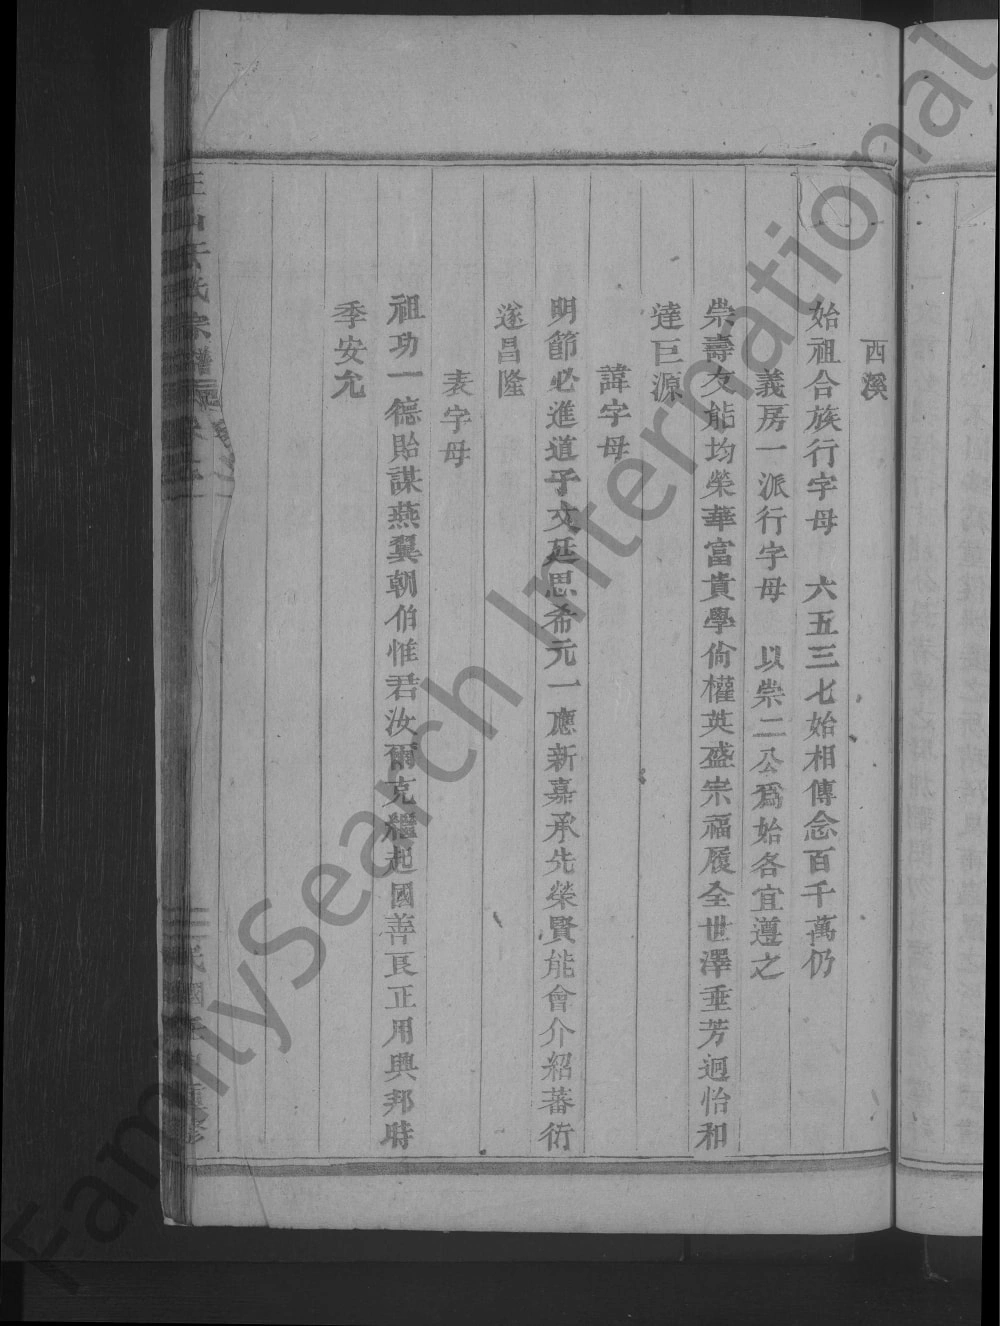 西溪
始祖合族行字母　六五三七始相傳念百千萬仍
義房一派行字母　以崇二公為始各宜遵之
崇壽友能均榮華富貴學尚權英盛宗福履全世澤垂芳迥怡和
達巨源
諱字母
明節必進道予文延思希元一應新嘉承先榮賢能會介紹蕃衍
遂昌隆
表字母
祖功一德貽謀燕翼朝伯惟君汝爾克繼起國善良正用興邦時
季安允
FamilySearch International